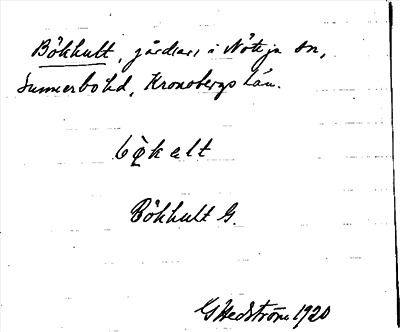 Bökhult, gård(ar) i Nöttja sn,
Sunnerbo hd, Kronobergs län.
bökalt
Bökhult G.
G Hedström 1920